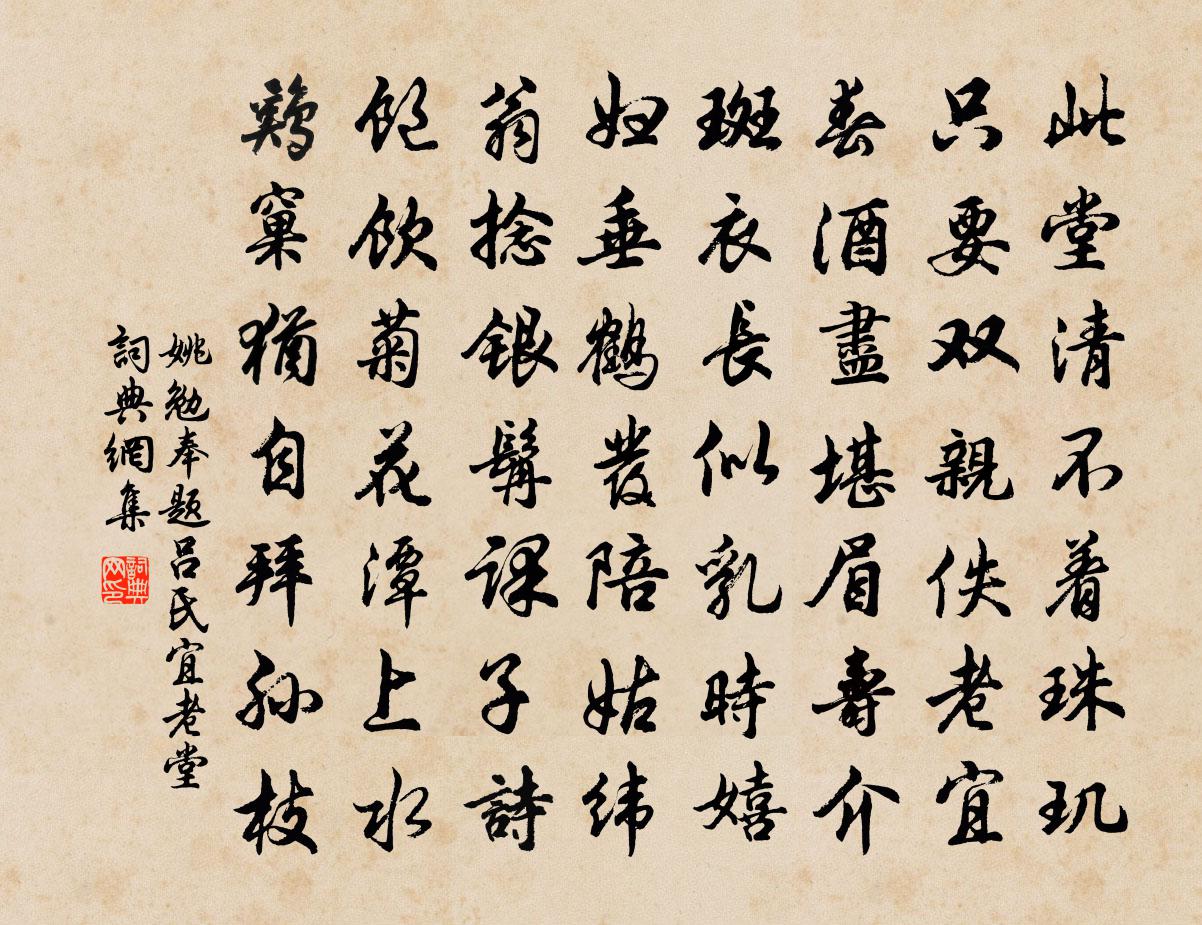 此堂清不着珠玑
只要双親佚老宜
春酒盡堪眉壽介
斑衣長似乳時嬉
妇垂鶴发陪姑纬
翁捻銀髯課子詩
飽飲菊花潭上水
鷄窠猶自拜孙枝
姚勉奉题吕氏宜老堂
詞典網集
詞典网印